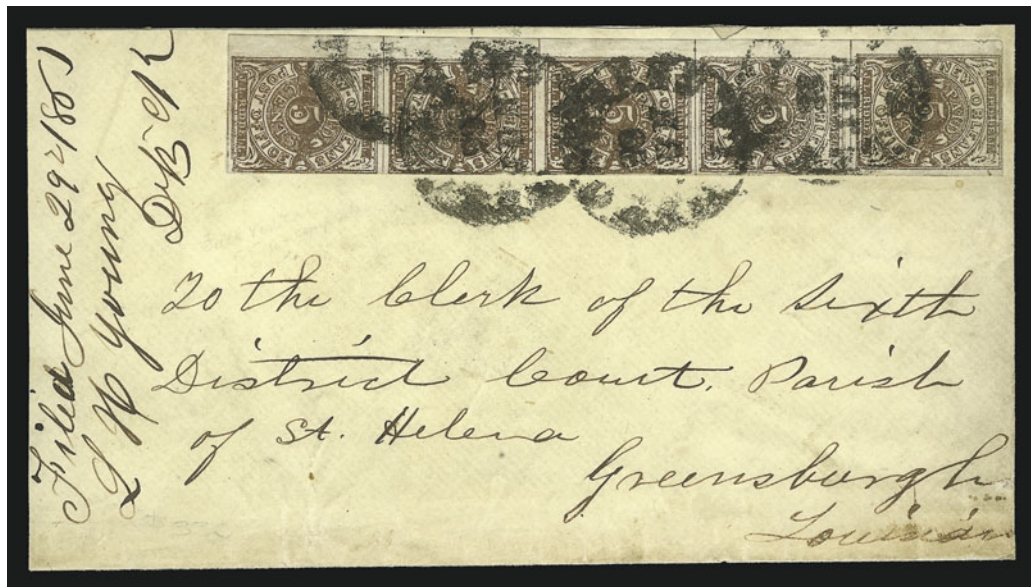 Filed June 29th 1861
L H Young
Dy Clk
To the Clerk of the Sixth
District Court. Parish
of St. Helena
Greensburgh
Louisia
5
5
5
5
5